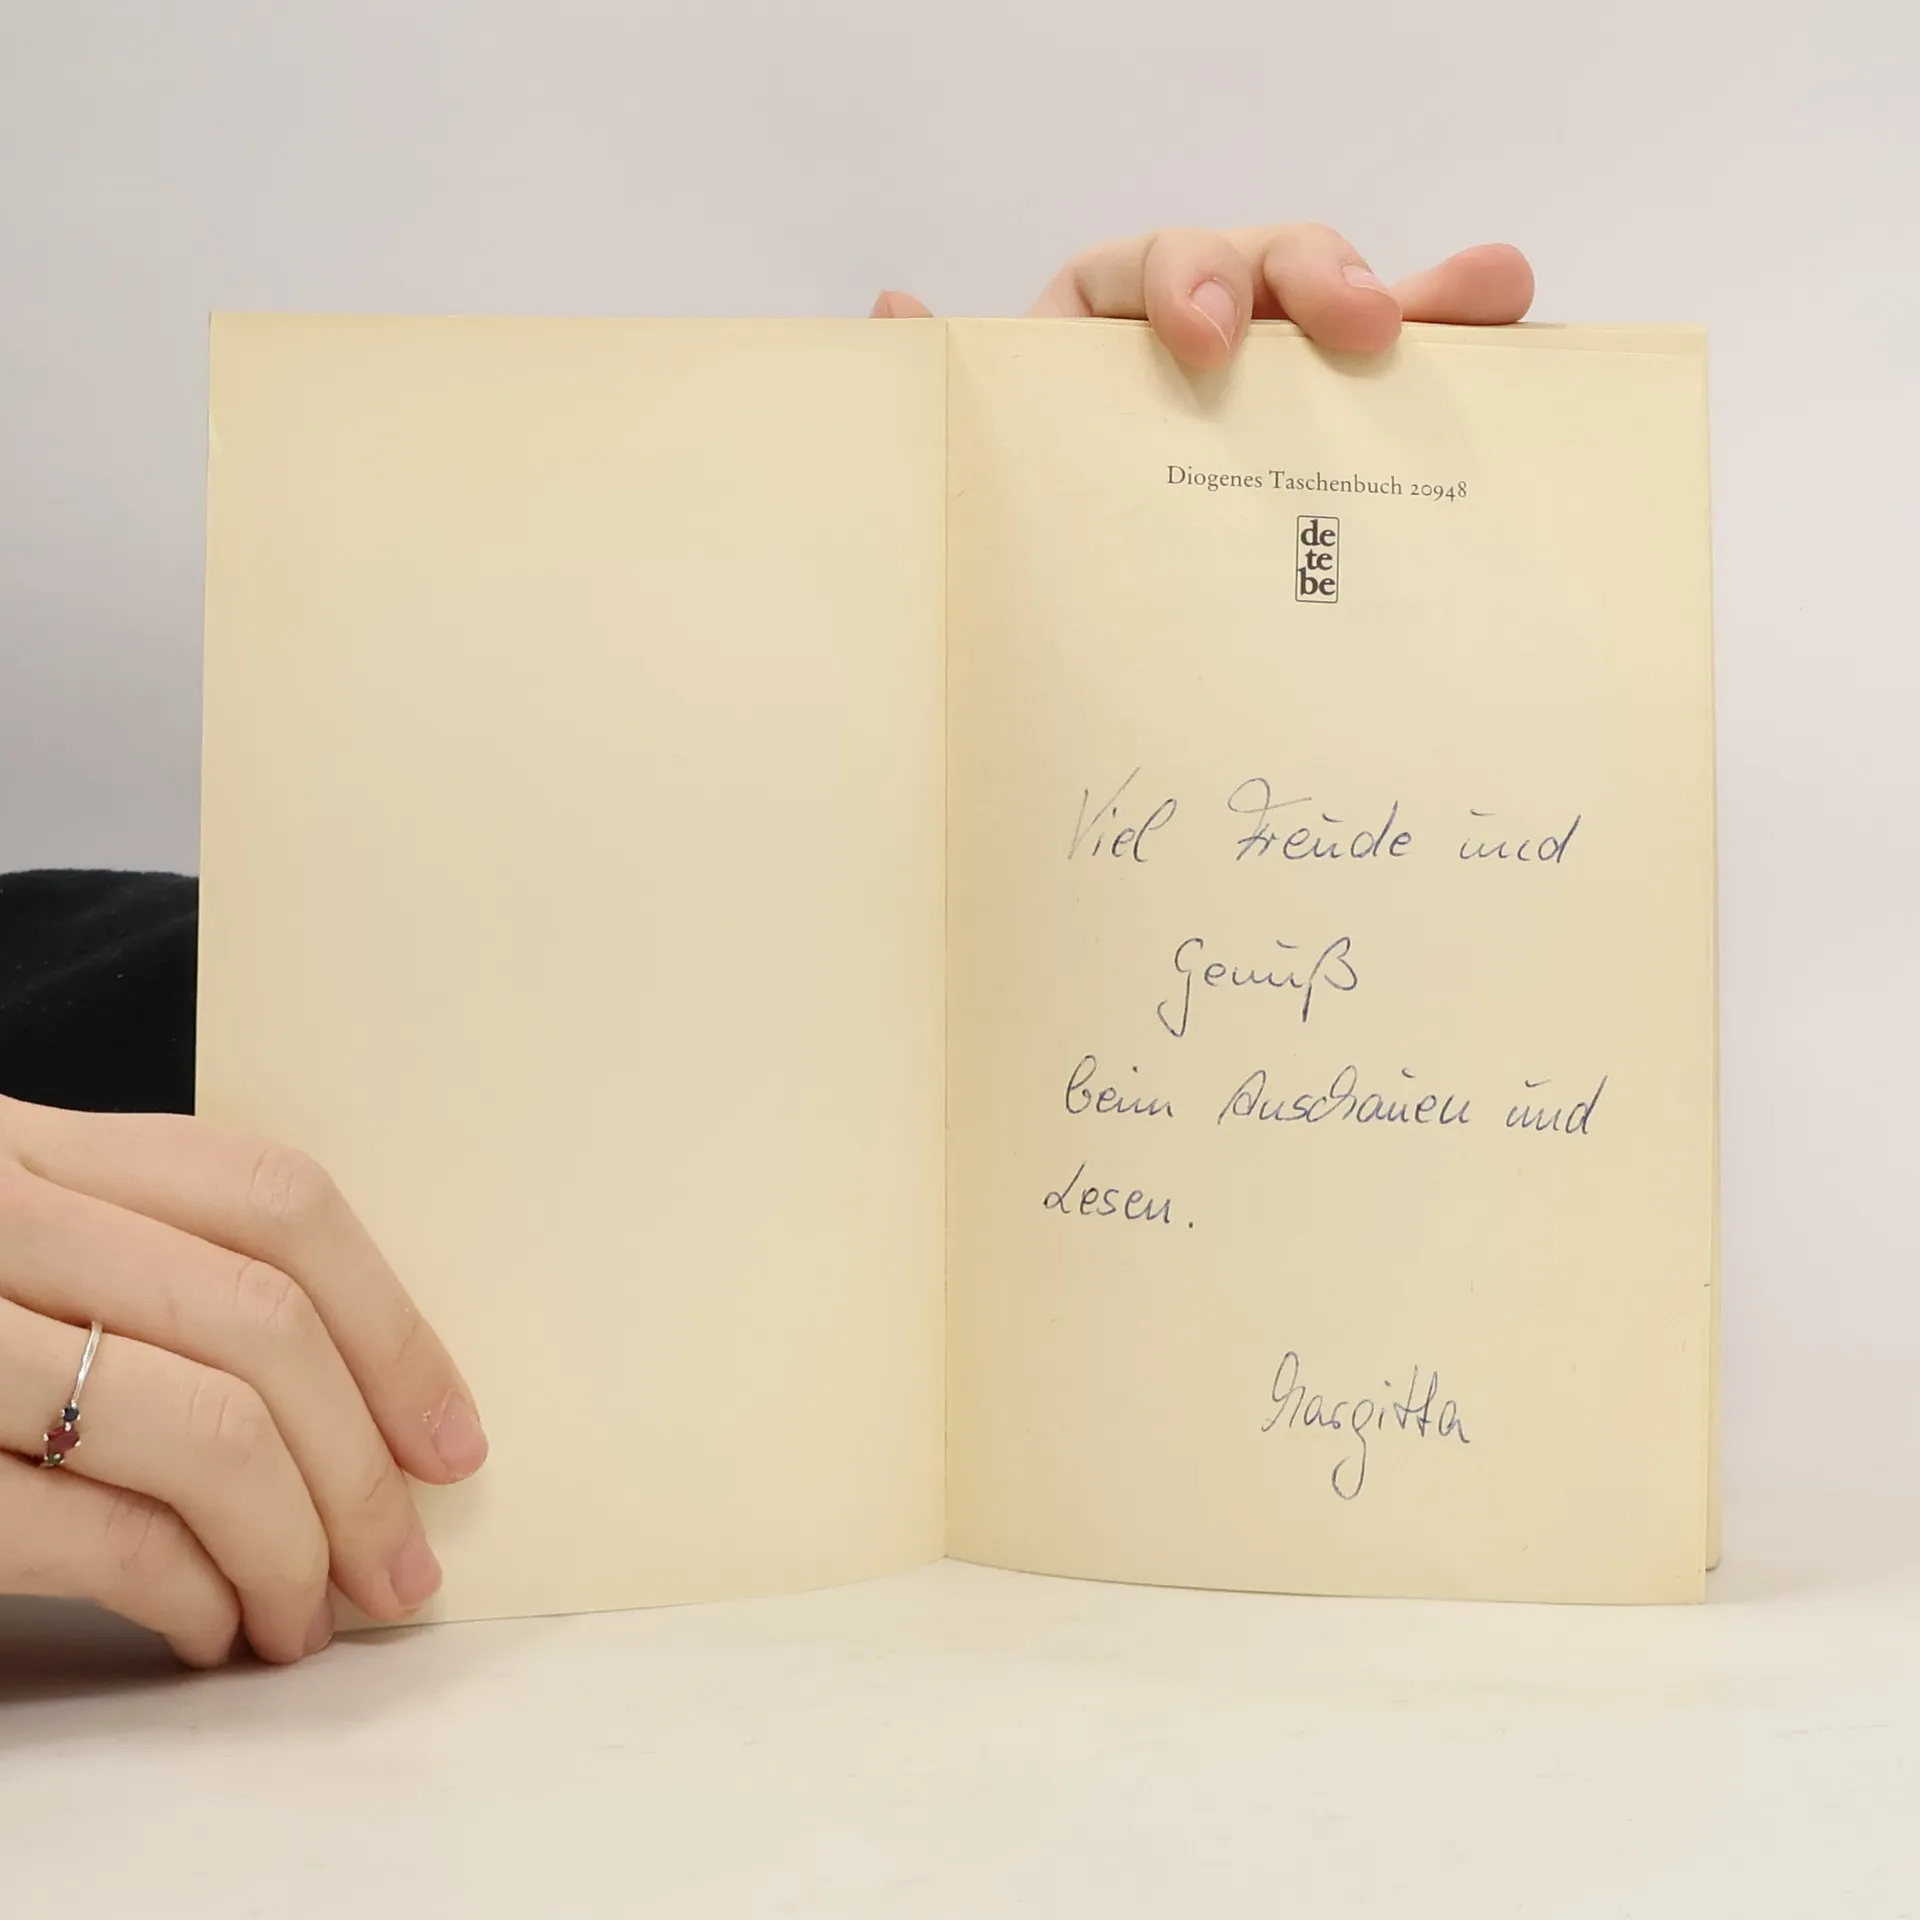 Diogenes Taschenbuch 20948
de
te
be
Viel Freude und
Genuß
beim Anschauen und
Lesen.
Margitta